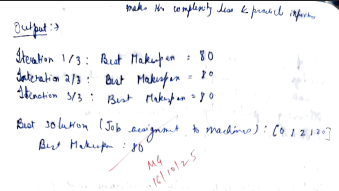 makes the complexity less & practical
Output :→
Iteration 1/3 : Best Makespan = 80
Iteration 2/3 : Best Makespan = 80
Iteration 3/3 : Best Makespan = 80
Best solution (Job assignment to machines) : [0 1 2 1 2 0]
Best Makespan : 80
16/10/25